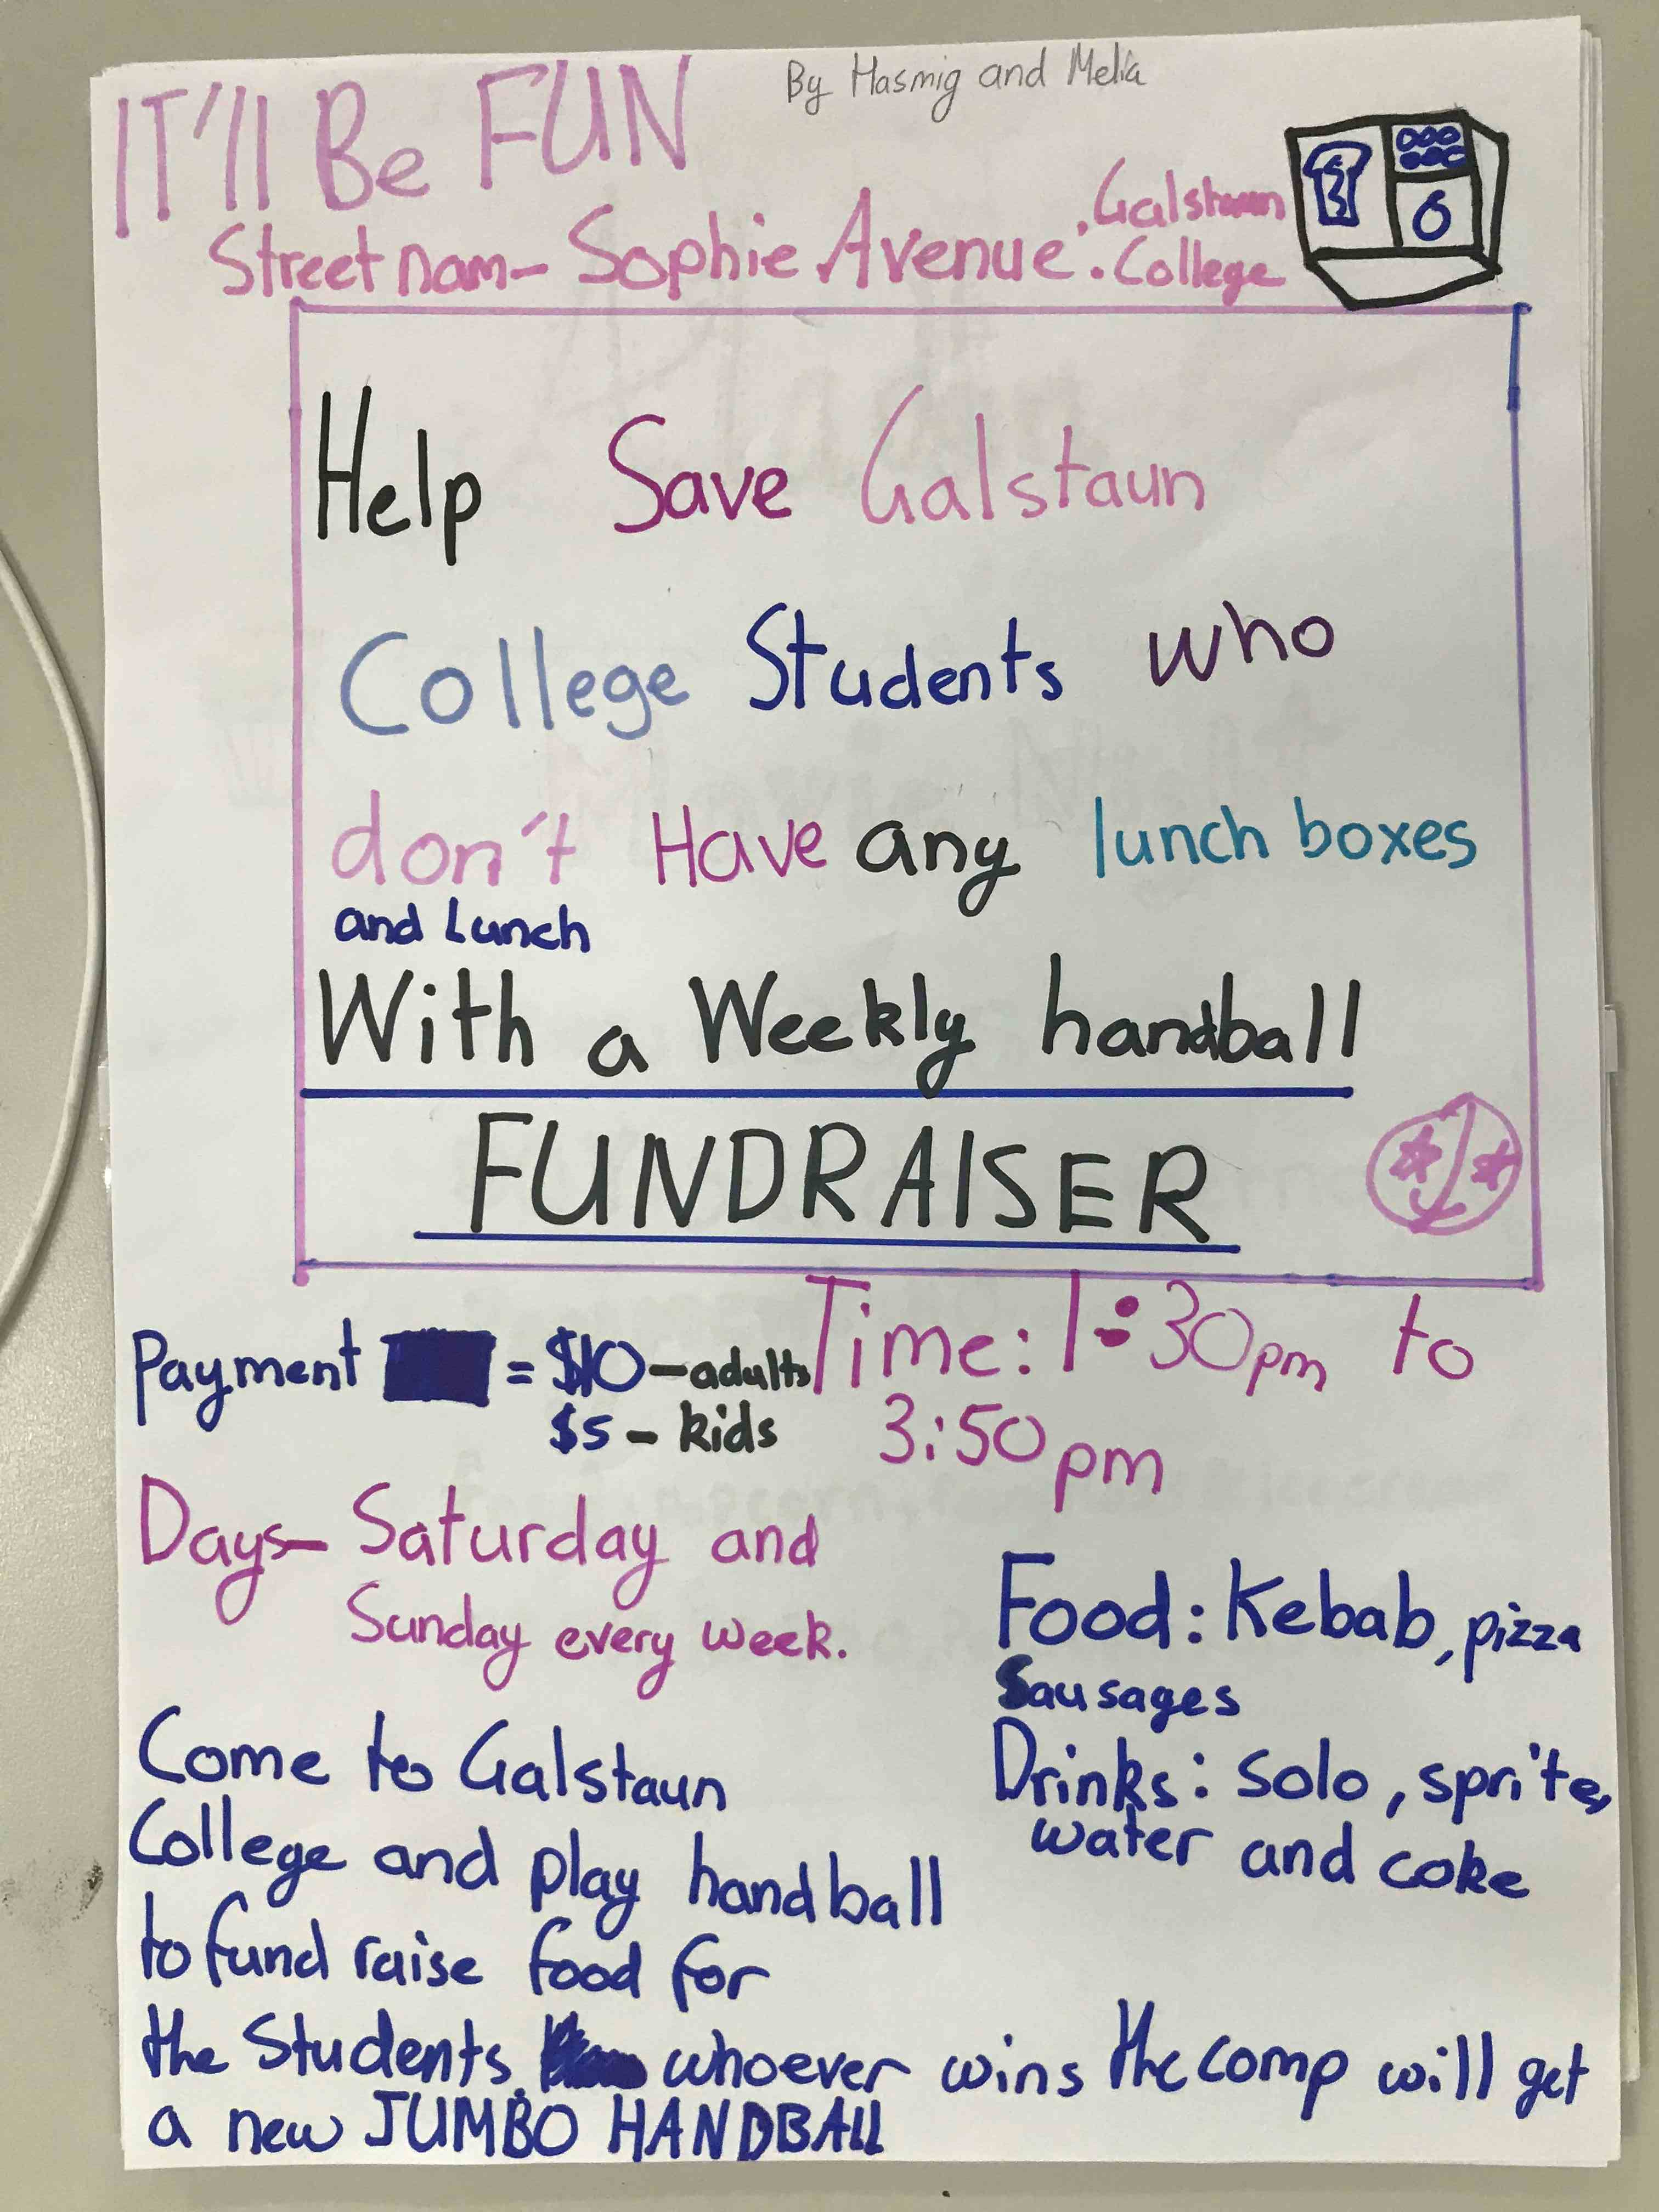 IT'll Be FUN
By Hasmig and Melia
Street nam- Sophie Avenue. Galstaun
College
Help Save Galstaun
College Students who
don't Have any lunch boxes
and Lunch
With a Weekly handball
FUNDRAISER
Payment = $10 - adults
$5 - kids
Time: 1:30pm to
3:50pm
Days- Saturday and
Sunday every week.
Food: Kebab, pizza
Sausages
Drinks: Solo, sprite,
water and coke
Come to Galstaun
College and play handball
to fund raise food for
the Students. whoever wins the comp will get
a new JUMBO HANDBALL